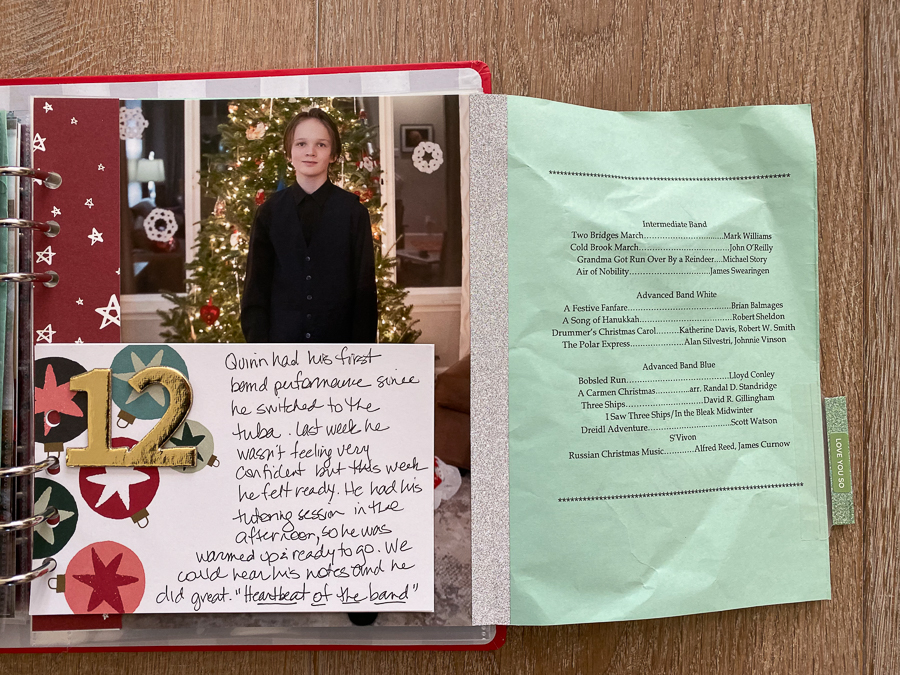 12
Quinn had his first
band performance since
he switched to the
tuba. Last week he
wasn't feeling very
confident but this week
he felt ready. He had his
tutoring session in the
afternoon, so he was
warmed up & ready to go. We
could hear his notes and he
did great. "Heartbeat of the band"
********************************************************
Intermediate Band
Two Bridges March……………………Mark Williams
Cold Brook March……………………John O'Reilly
Grandma Got Run Over By a Reindeer…Michael Story
Air of Nobility……………………James Swearingen
Advanced Band White
A Festive Fanfare……………………Brian Balmages
A Song of Hanukkah……………………Robert Sheldon
Drummer's Christmas Carol………Katherine Davis, Robert W. Smith
The Polar Express……………Alan Silvestri, Johnnie Vinson
Advanced Band Blue
Bobsled Run……………………Lloyd Conley
A Carmen Christmas…………arr. Randal D. Standridge
Three Ships……………………David R. Gillingham
I Saw Three Ships/In the Bleak Midwinter
Dreidl Adventure……………………Scott Watson
S'Vivon
Russian Christmas Music…………Alfred Reed, James Curnow
********************************************************
LOVE YOU SO